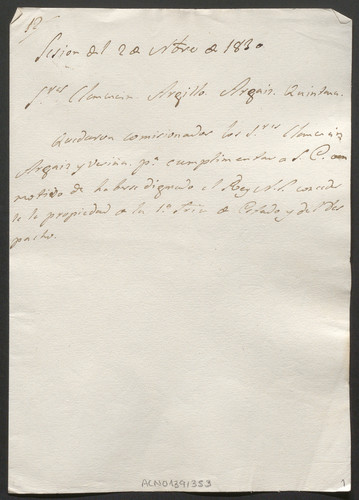 12
Sesion del 2 de Nbre de 1830
S.res Clemencin. Argillo. Arguiz. Quintana.
Quedaron comisionados los S.res Clemencin
Arguiz y pa cumplimentar a S. E. con
motivo de haberse dignado el Rey N.S. conceder
le la propiedad de la 1a Sria de Estado y del Des
pacho.
ACN01391353
1